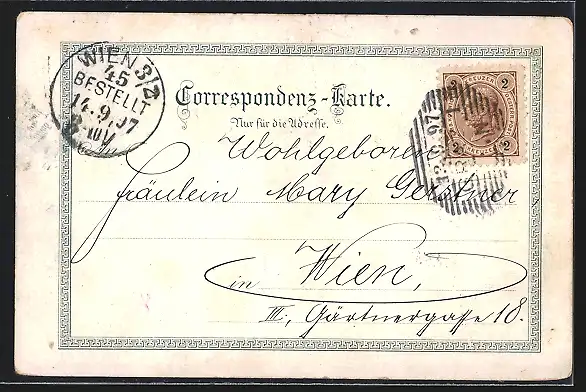 WIEN 3/2
45
BESTELLT
14.9.97
Correspondenz-Karte.
Nur für die Adresse.
2 KREUZER 2
2 2
97
Wohlgeboren
Fräulein Mary Gerstner
in Wien,
III., Gärtnergasse 18.